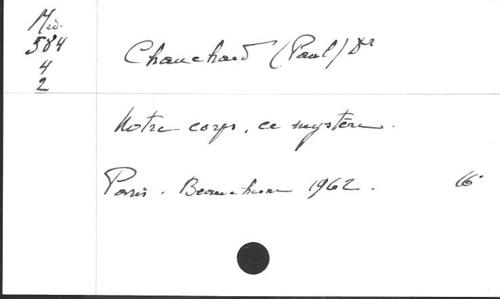 Méd.
584
4
2
Chauchard (Paul) Dr
Notre corps, ce mystère.
Paris. Beauchesne 1962.
16°